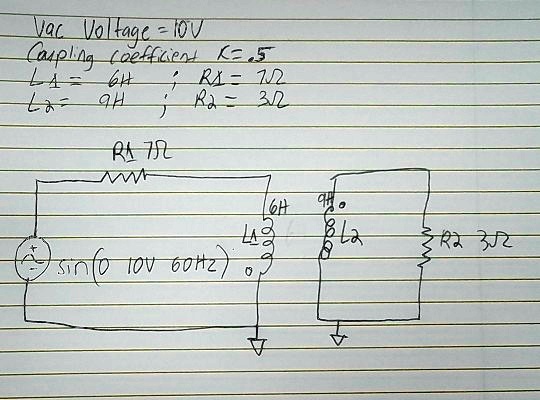 Vac Voltage = 10V
Coupling coefficient K= .5
L1 = 6H ; R1 = 7Ω
L2 = 9H ; R2 = 3Ω
R1 7Ω
6H
9H
L1
L2
R2 3Ω
sin(0 10V 60Hz)